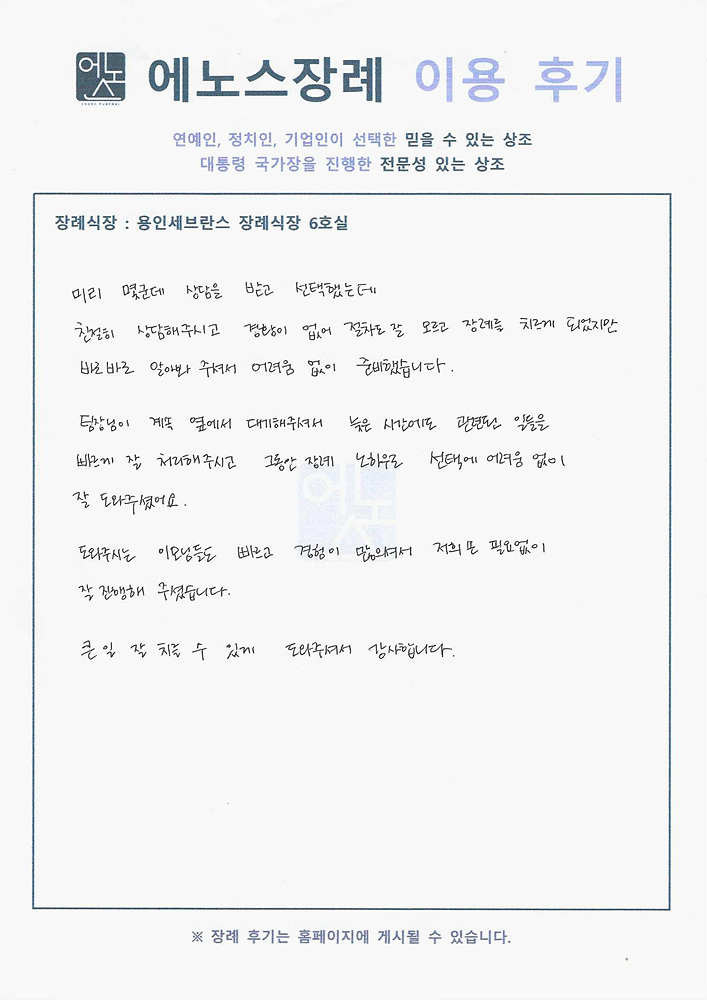 에노스장례 이용 후기
연예인, 정치인, 기업인이 선택한 믿을 수 있는 상조
대통령 국가장을 진행한 전문성 있는 상조
장례식장 : 용인세브란스 장례식장 6호실
미리 몇군데 상담을 받고 선택했는데
친절히 상담해주시고 경황이 없어 절차도 잘 모르고 장례를 치르게 되었지만
바로바로 알아봐 주셔서 어려움 없이 준비했습니다.
팀장님이 계속 옆에서 대기해주셔서 늦은 시간에도 관련된 일들을
빠르게 잘 처리해주시고 그동안 장례 노하우로 선택에 어려움 없이
잘 도와주셨어요.
도와주시는 이모님들도 빠르고 경험이 많으셔서 저희 필요없이
잘 진행해 주셨습니다.
큰일 잘 치를 수 있게 도와주셔서 감사합니다.
※ 장례 후기는 홈페이지에 게시될 수 있습니다.